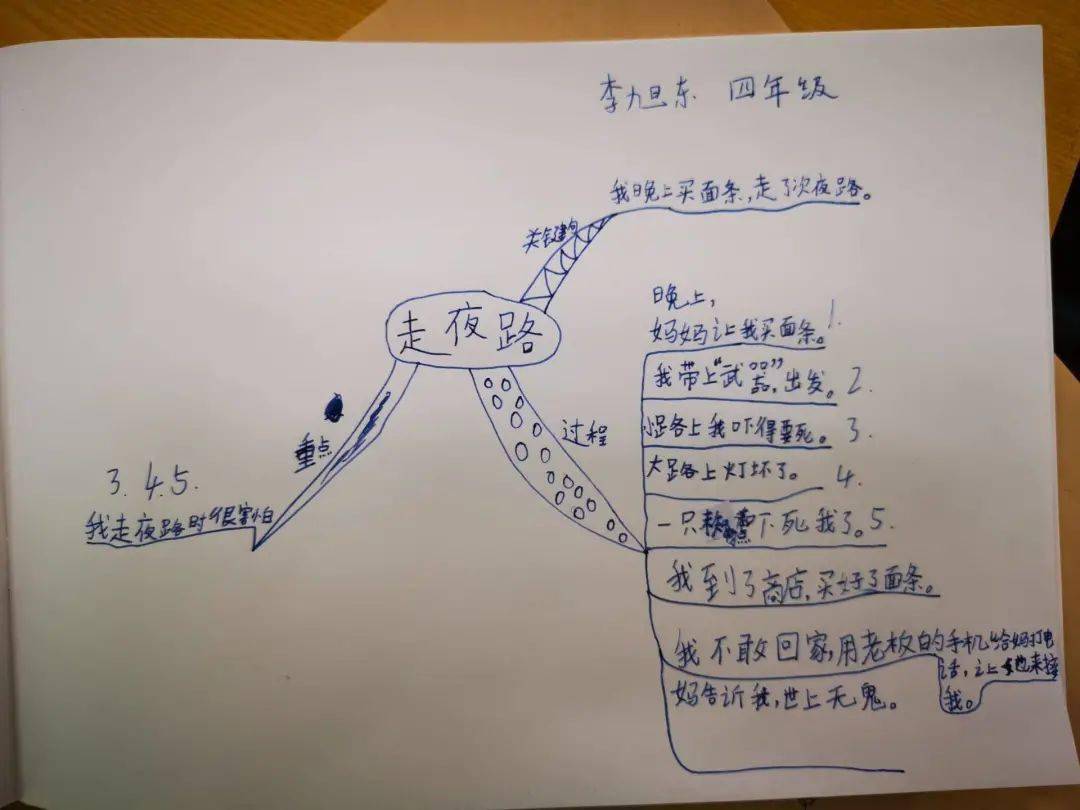 李旭东 四年级
我晚上买面条,走了次夜路。
关键句
走夜路
晚上,
妈妈让我买面条。1.
我带上“武器”,出发。2.
小路上我吓得要死。3.
大路上灯坏了。4.
一只 下死我了。5.
我到了商店,买好了面条。
我不敢回家,用老板的手机给妈打电
话,让她来接
我。
妈告诉我,世上无鬼。
过程
重点
3.4.5.
我走夜路时很害怕